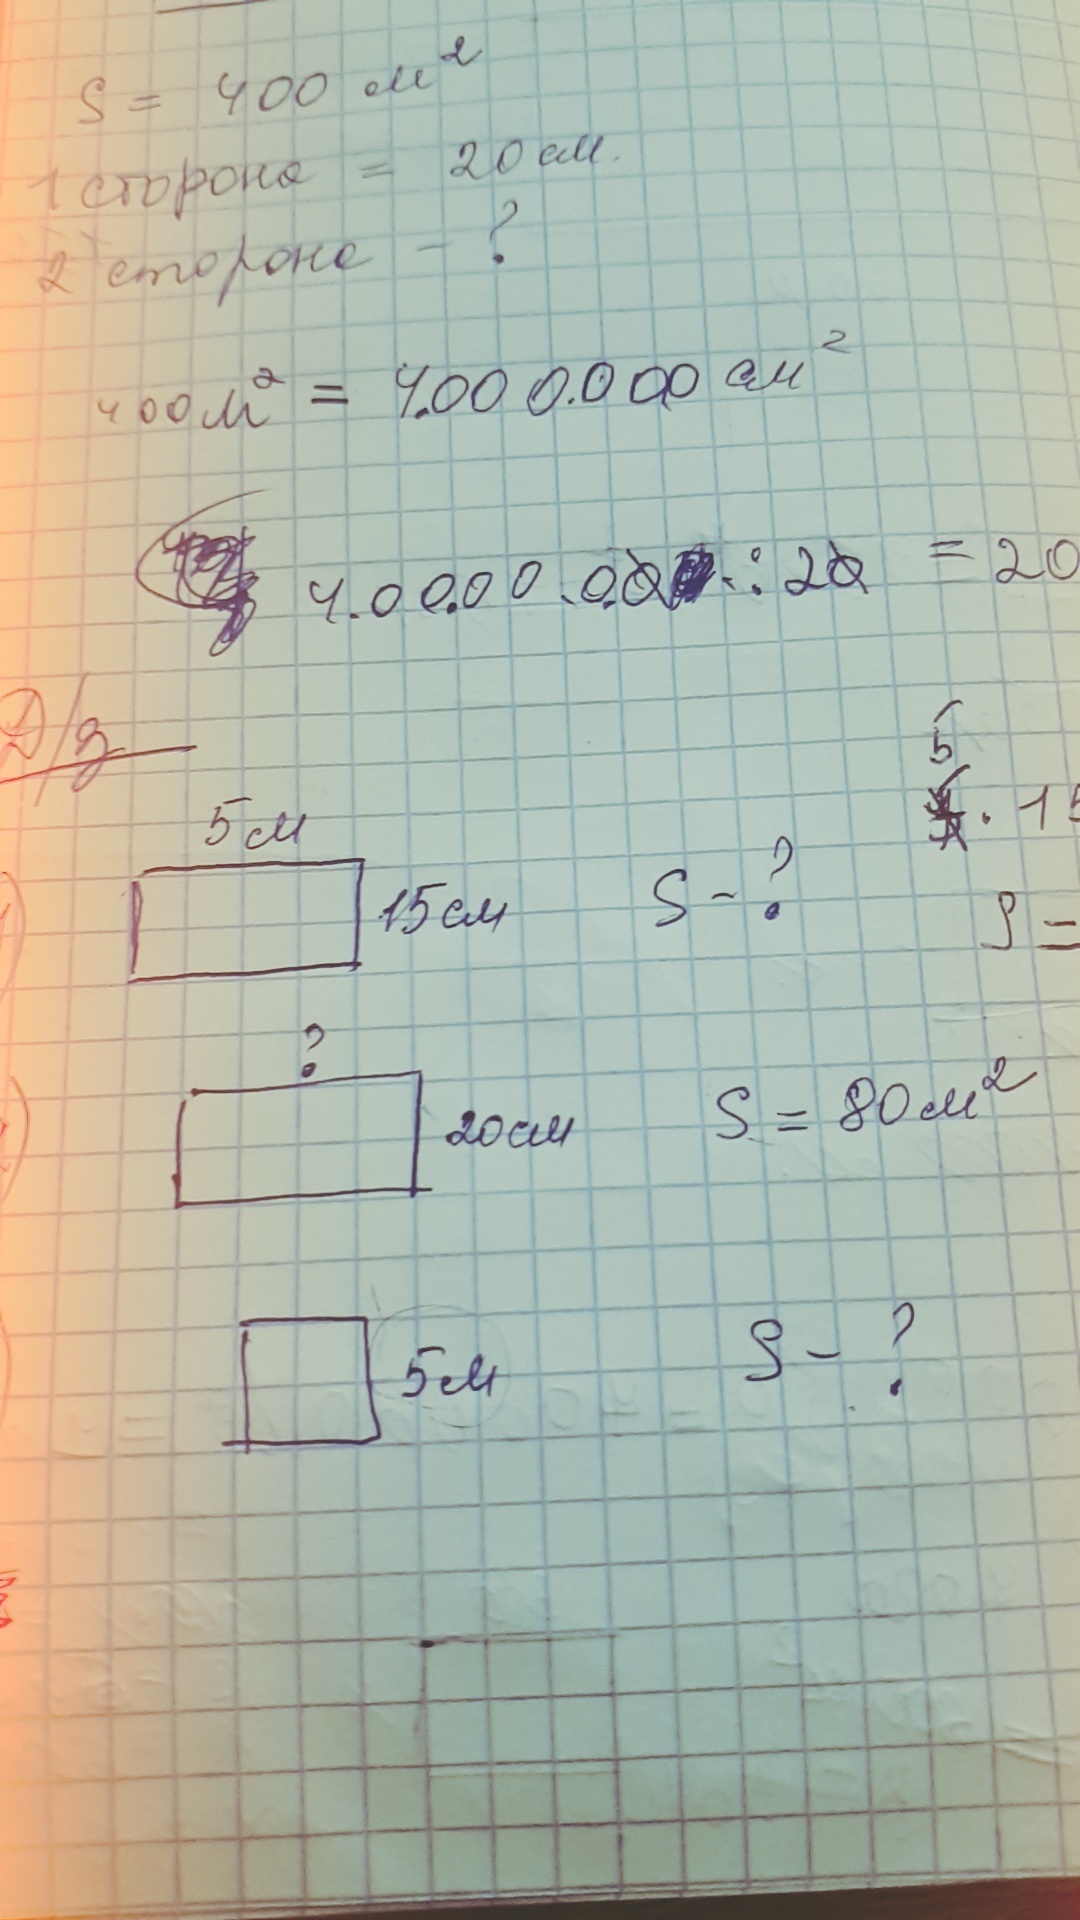 S = 400 м²
1 сторона = 20 см.
2 сторона - ?
400 м² = 4.000.000 см²
4.0000.00 : 20 = 20
Д/з
5 м
15 см
S - ?
5
. 15
S =
?
20 см
S = 80 м²
5 м
S - ?